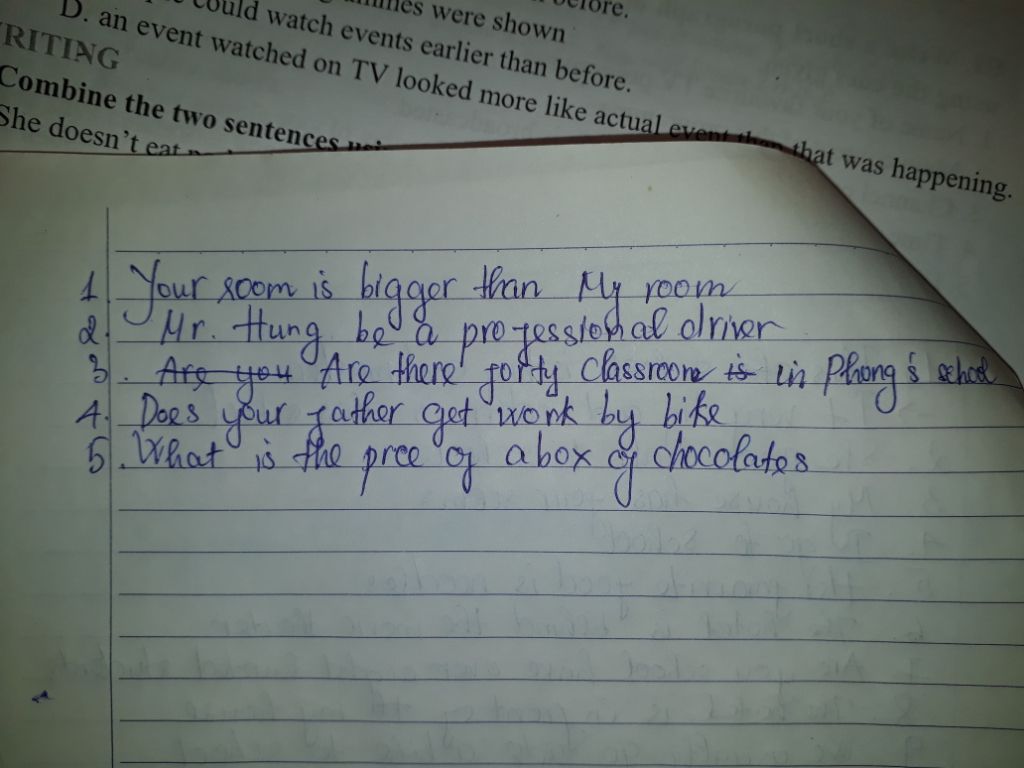 were shown
could watch events earlier than before.
D. an event watched on TV looked more like actual event than that was happening.
RITING
Combine the two sentences
She doesn't eat
1 Your room is bigger than My room
2. Mr. Hung be a professional driver
3. Are you Are there forty classroom is in Phong's school
4. Does your father get work by bike
5. What is the pree of a box of chocolates